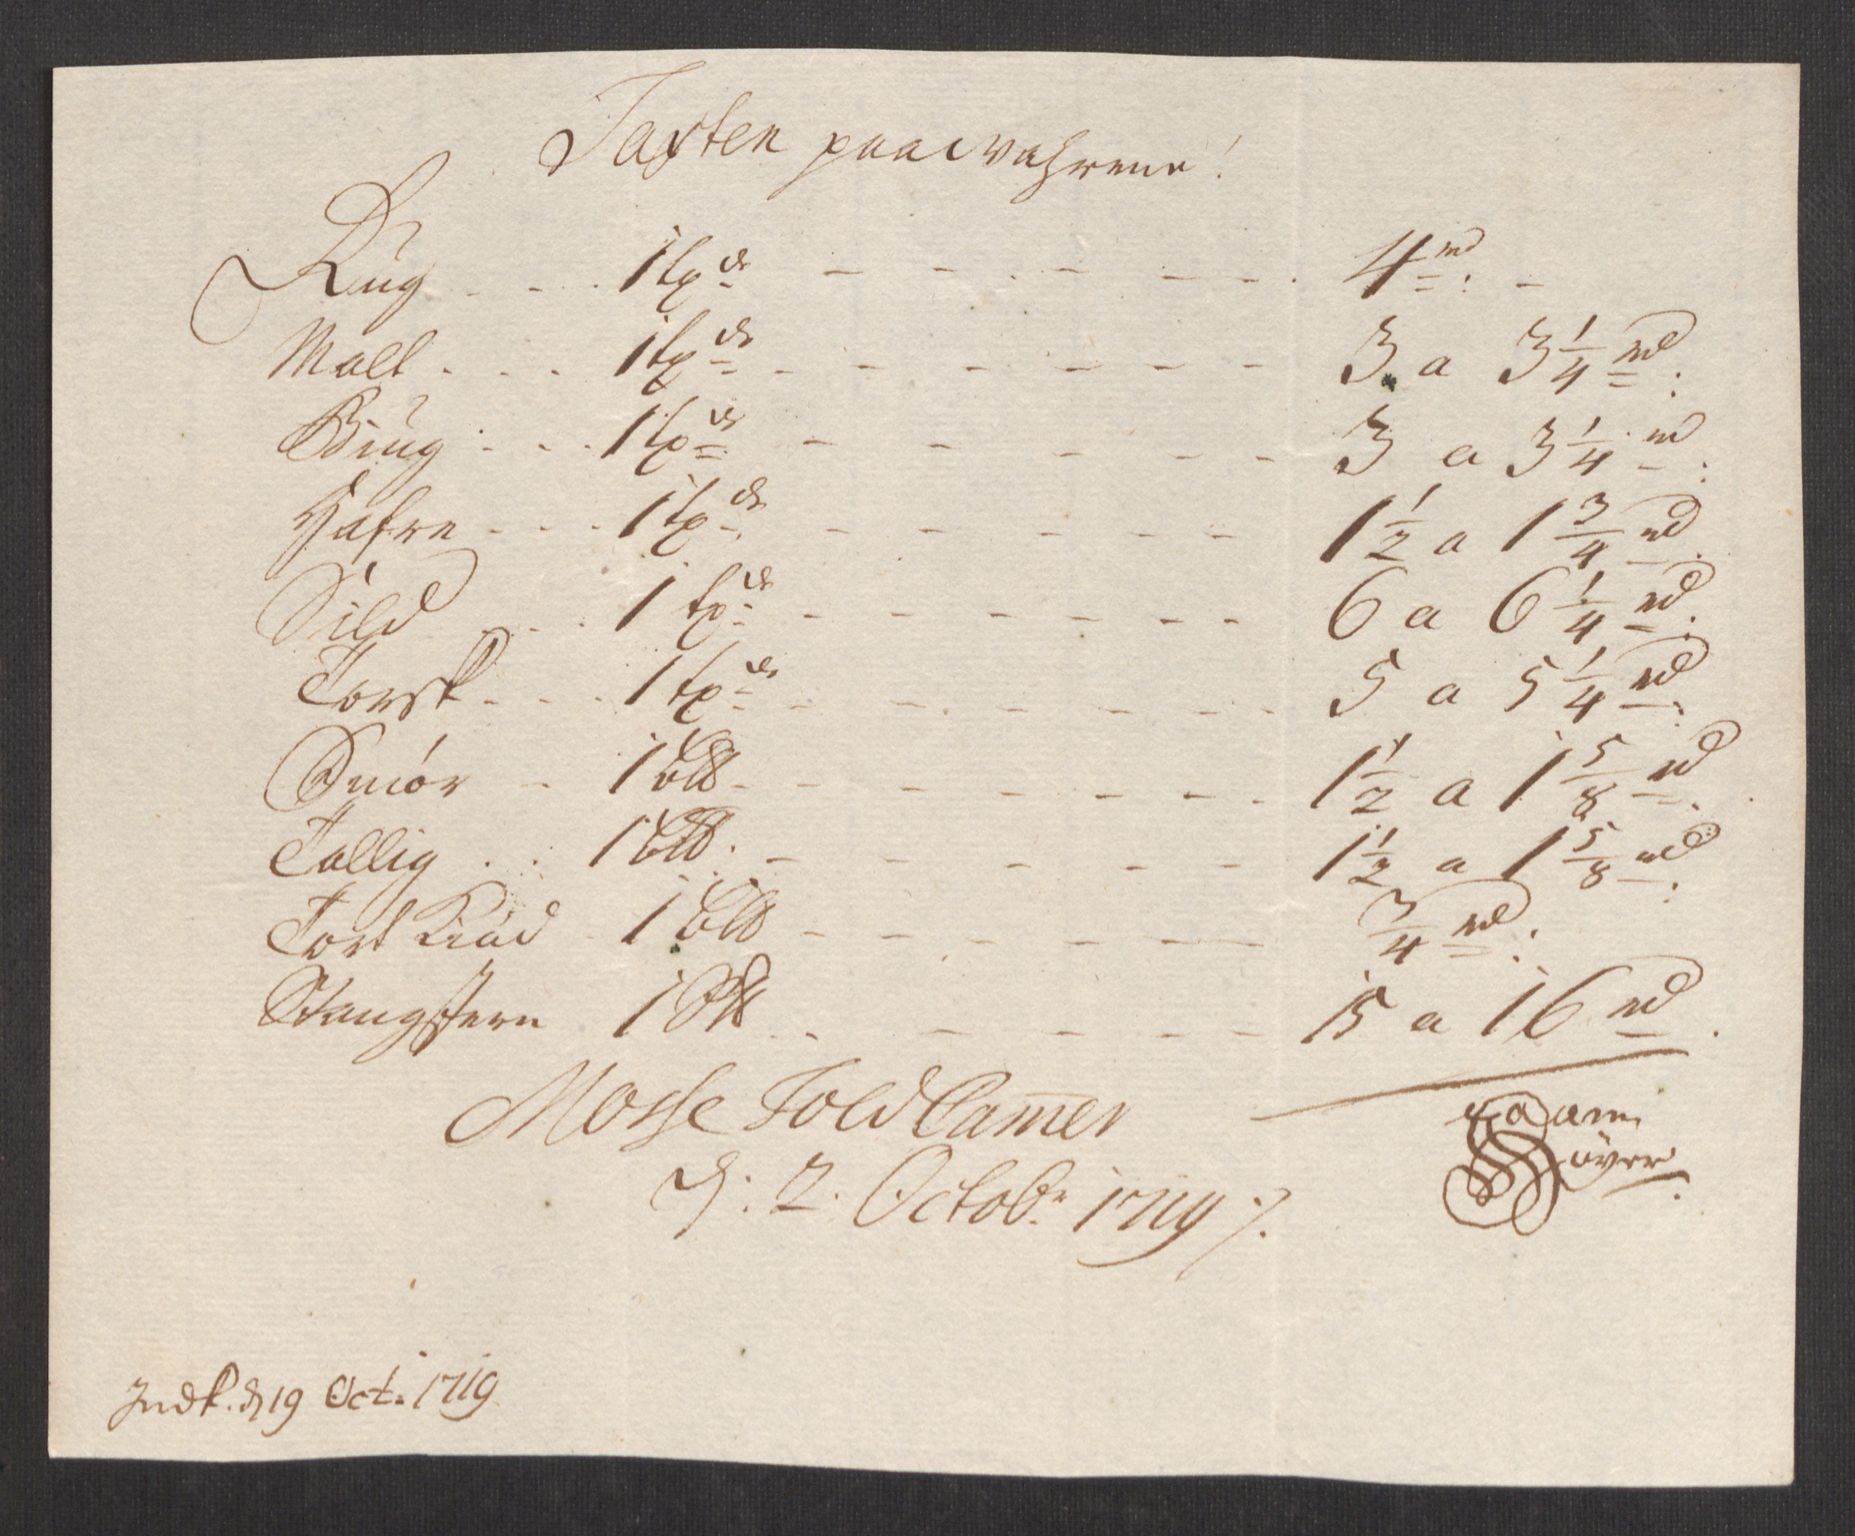 Taxten paa wahrene!
Rug - - - 1 tødr - - - - - 4 rd: -
Malt - - - 1 tødr - - - - - 3 a 3 1/4 rd:
Biug - - - 1 tødr - - - - - 3 a 3 1/4 rd:
Hafre - - - 1 tødr - - - - - 1 1/2 a 1 3/4 rd.
Sild - - - 1 tødr - - - - - 6 a 6 1/4 rd:
Torsk - - - 1 tødr - - - - - 5 a 5 1/4 rd:
Smör - 1 - - - - - 1 1/2 a 1 5/8 rd.
Tallig - - 1 - - - - - 1 1/2 a 1 5/8 rd:
Tort Kiöd - 1 - - - - - 3/4 rd:
Stangjern 1 - - - - - 15 a 16 rd.
Mosse Told Camer
d: 2. Octobr 1719
Indk. d 19 Oct. 1719